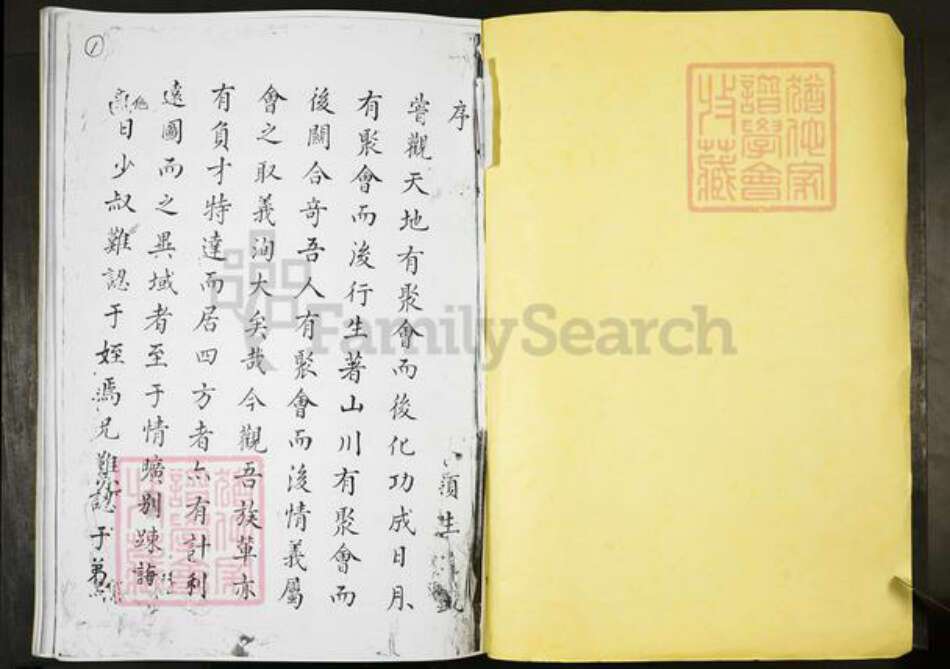 序
嘗觀天地有聚會而後化功成日月
有聚會而後行生著山川有聚會而
後關合奇吾人有聚會而後情義屬
會之取義洵大矣哉今觀吾族輩亦
有負才特達而居四方者亦有計利
遠圖而之異域者至于情曠別踈
日少叔難認于姪焉兄難認于弟
FamilySearch
譜學會
收藏
1